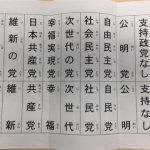 支持政党なし 支持なし
公明党 公明
自由民主党 自民党
社会民主党 社民党
次世代の党 次世代
幸福実現党 幸福
日本共産党 共産党
維新の党 維新